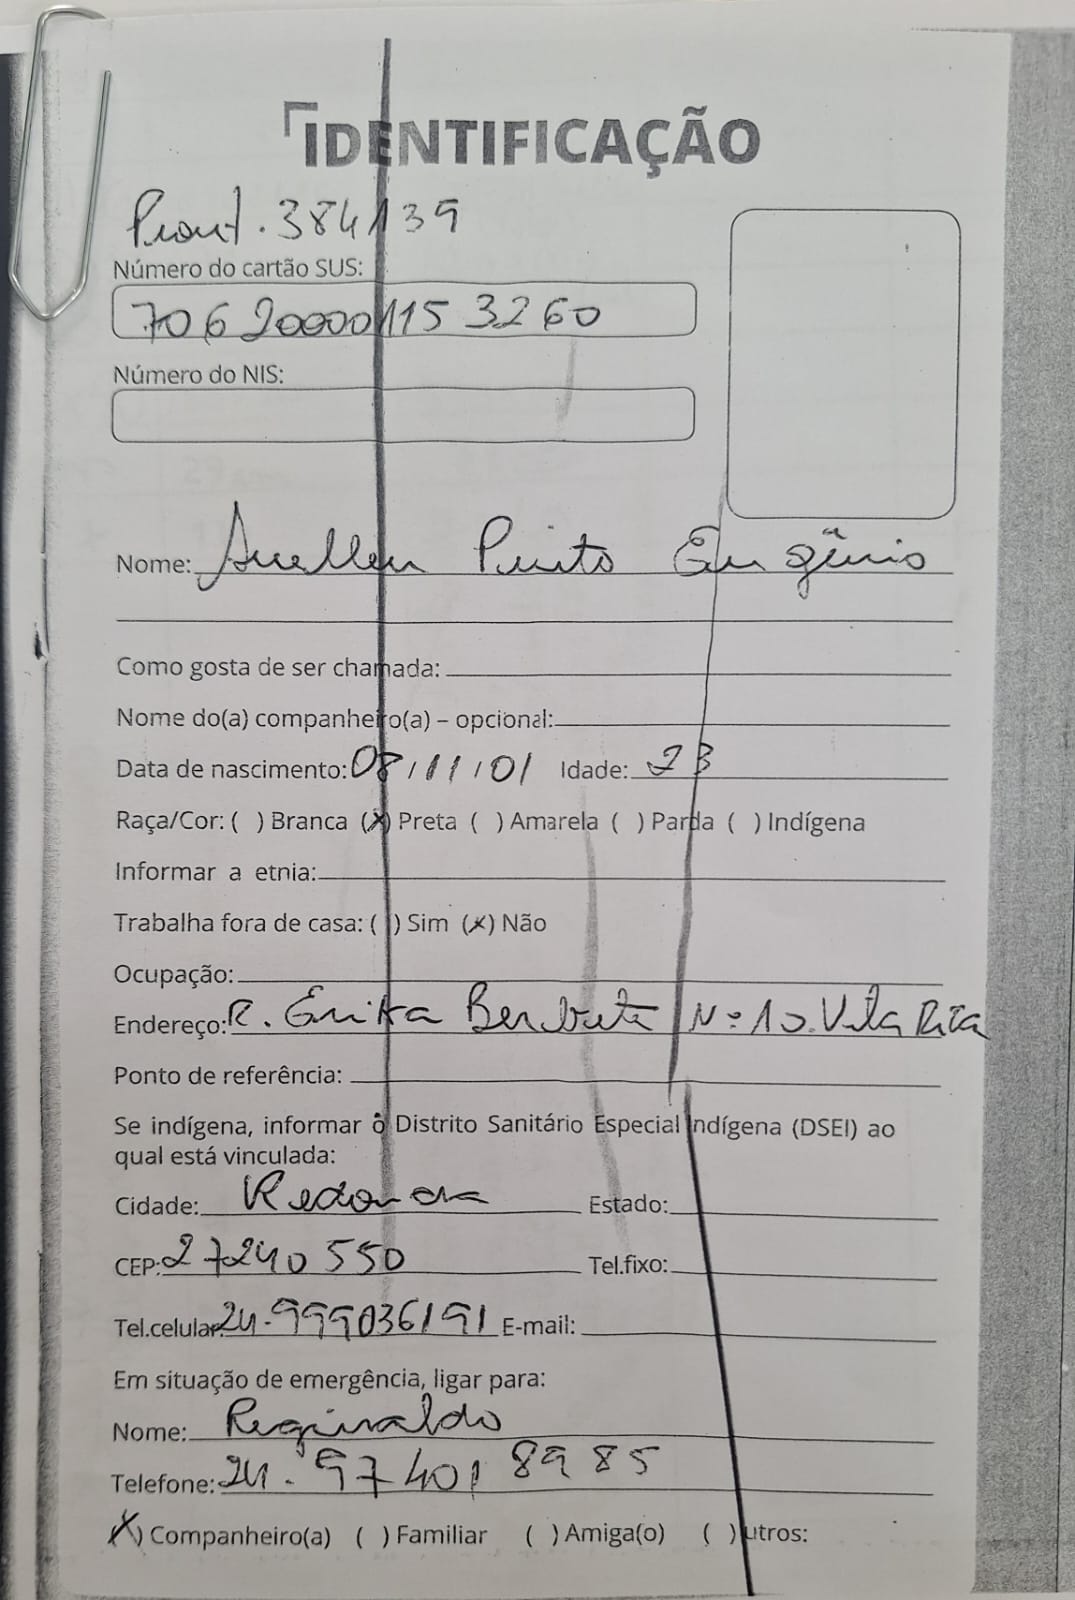 IDENTIFICAÇÃO
Pront. 384139
Número do cartão SUS:
706 20000115 3260
Número do NIS:
Nome: Suellen Pinto Eugênio
Como gosta de ser chamada:
Nome do(a) companheiro(a) – opcional:
Data de nascimento: 08/11/01 Idade: 23
Raça/Cor: ( ) Branca (X) Preta ( ) Amarela ( ) Parda ( ) Indígena
Informar a etnia:
Trabalha fora de casa: ( ) Sim (X) Não
Ocupação:
Endereço: R. Erika Nº 10. Vila Rica
Ponto de referência:
Se indígena, informar o Distrito Sanitário Especial Indígena (DSEI) ao
qual está vinculada:
Cidade: Redonda Estado:
CEP: 27240 550 Tel.fixo:
Tel.celular: 24-999036191 E-mail:
Em situação de emergência, ligar para:
Nome: Reginaldo
Telefone: 24-97401 8985
(X) Companheiro(a) ( ) Familiar ( ) Amiga(o) ( ) utros: